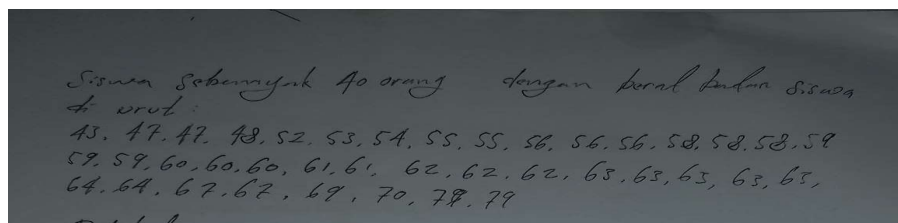 Siswa Sebanyak 40 orang dengan berat badan siswa
di urut :
43. 47. 47. 48. 52. 53. 54. 55. 55. 56. 56. 56. 58. 58. 58. 59
59. 59. 60. 60. 60. 61. 61. 62. 62. 62. 63. 63. 63, 63, 63,
64. 64. 67. 67. 69. 70. 79